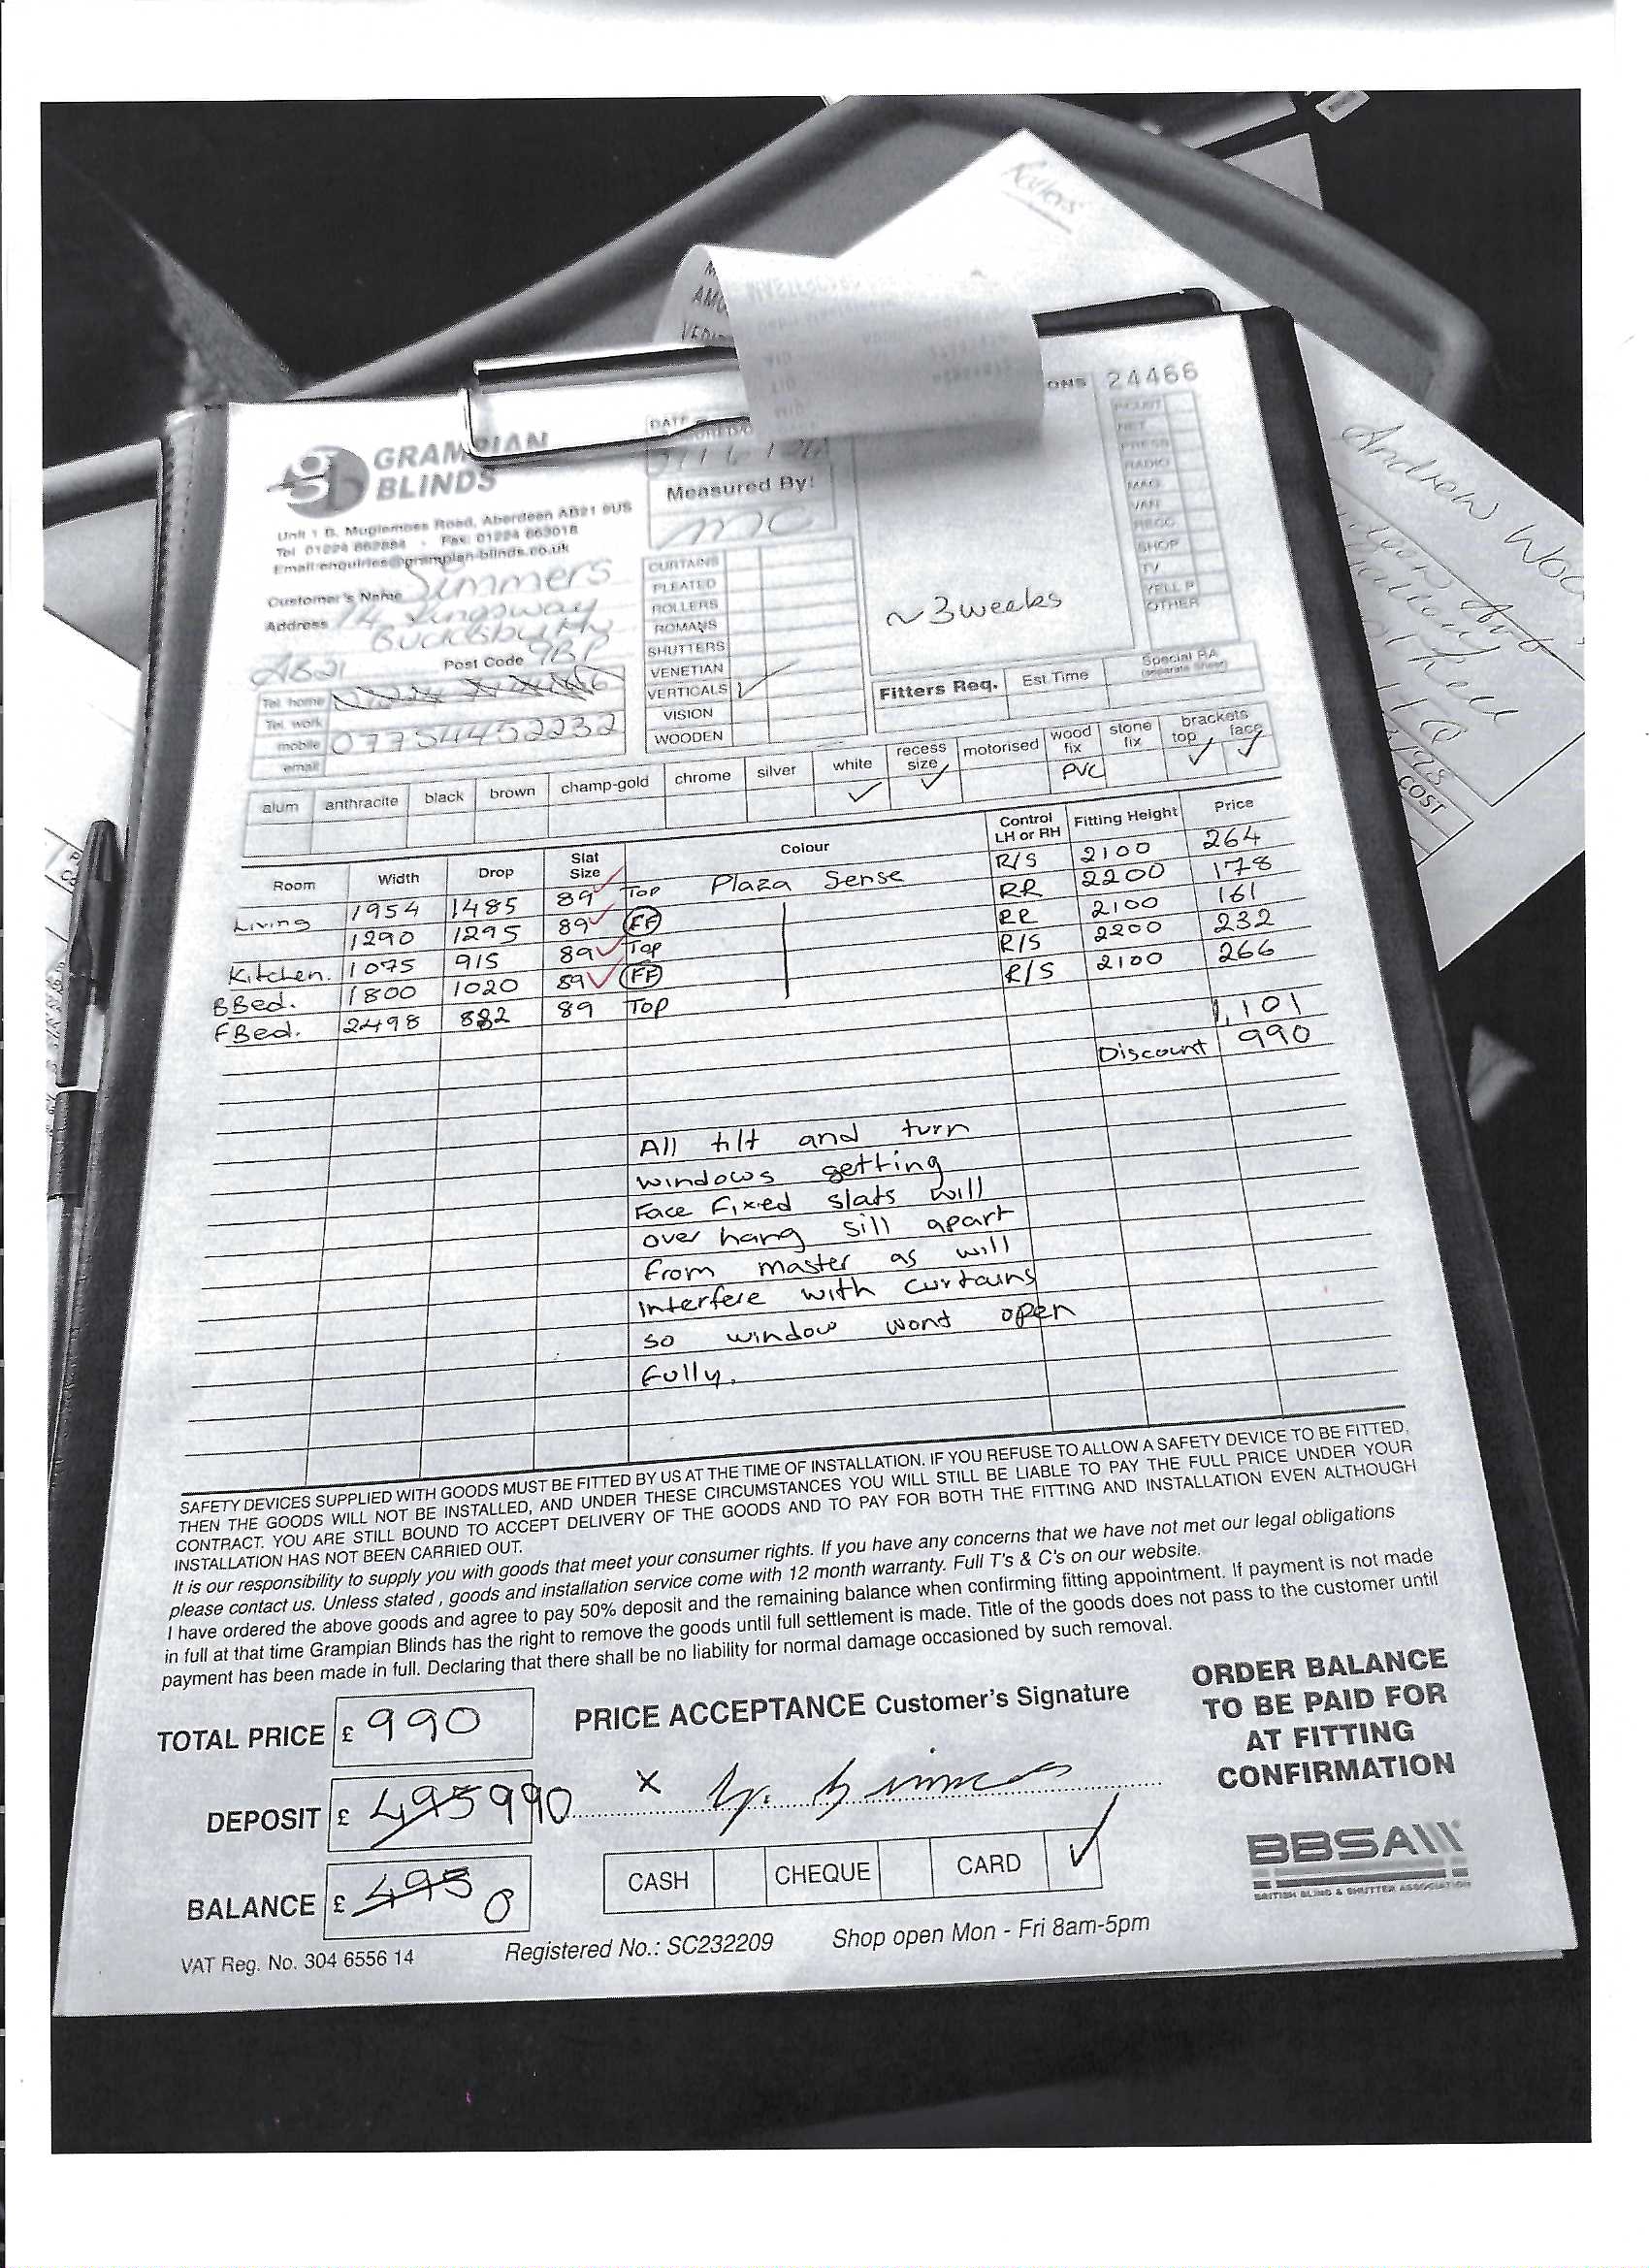 Rollers
AMO
24466
GRAMPIAN
BLINDS
DATE
Unit 1 B, Mugiemoss Road, Aberdeen AB21 9US
Tel 01224 662884 - Fax: 01224 663018
Email:enquiries@grampian-blinds.co.uk
Measured By:
MC
Customer's Name Simmers
Address 14 Kingsway
Bucksburn
AB21 Post Code 9BP
Tel. home
Tel. work
mobile 07754452232
email
CURTAINS
PLEATED
ROLLERS
ROMANS
SHUTTERS
VENETIAN
VERTICALS ✓
VISION
WOODEN
~3 weeks
NET
PRESS
RADIO
MAG
VAN
RECC
SHOP
TV
YELL P
OTHER
Fitters Req. Est Time Special RA
Andrew
COST
alum anthracite black brown champ-gold chrome silver white ✓ recess size ✓ motorised wood fix PVC stone fix brackets top ✓ face ✓
Room Width Drop Slat Size Colour Control LH or RH Fitting Height Price
Living 1954 1485 89 ✓ Top Plaza Sense R/S 2100 264
1290 1295 89 ✓ FF RR 2200 178
Kitchen. 1075 915 89 ✓ Top RR 2100 161
BBed. 1800 1020 89 ✓ FF R/S 2200 232
FBed. 2498 882 89 Top R/S 2100 266
1,101
Discount 990
All tilt and turn
windows getting
Face fixed slats will
over hang sill apart
from master as will
interfere with curtains
so window wont open
fully.
SAFETY DEVICES SUPPLIED WITH GOODS MUST BE FITTED BY US AT THE TIME OF INSTALLATION. IF YOU REFUSE TO ALLOW A SAFETY DEVICE TO BE FITTED,
THEN THE GOODS WILL NOT BE INSTALLED, AND UNDER THESE CIRCUMSTANCES YOU WILL STILL BE LIABLE TO PAY THE FULL PRICE UNDER YOUR
CONTRACT. YOU ARE STILL BOUND TO ACCEPT DELIVERY OF THE GOODS AND TO PAY FOR BOTH THE FITTING AND INSTALLATION EVEN ALTHOUGH
INSTALLATION HAS NOT BEEN CARRIED OUT.
It is our responsibility to supply you with goods that meet your consumer rights. If you have any concerns that we have not met our legal obligations
please contact us. Unless stated , goods and installation service come with 12 month warranty. Full T's & C's on our website.
I have ordered the above goods and agree to pay 50% deposit and the remaining balance when confirming fitting appointment. If payment is not made
in full at that time Grampian Blinds has the right to remove the goods until full settlement is made. Title of the goods does not pass to the customer until
payment has been made in full. Declaring that there shall be no liability for normal damage occasioned by such removal.
TOTAL PRICE £ 990
PRICE ACCEPTANCE Customer's Signature
ORDER BALANCE
TO BE PAID FOR
AT FITTING
CONFIRMATION
DEPOSIT £ 495 990
x
BALANCE £ 495 0
CASH CHEQUE CARD ✓
BBSA
BRITISH BLIND & SHUTTER ASSOCIATION
VAT Reg. No. 304 6556 14 Registered No.: SC232209 Shop open Mon - Fri 8am-5pm